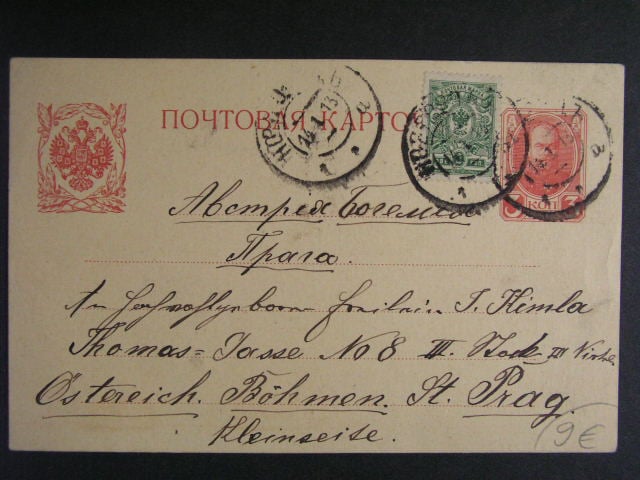 ПОЧТОВАЯ КАРТО
3 КОП 3
Австрея Богемия
Прага.
An Hochwohlgeboren Freilein J. Himla
Thomas=Gasse No 8 III. Stock
Östereich. Böhmen. St. Prag.
Kleinseite.
9€